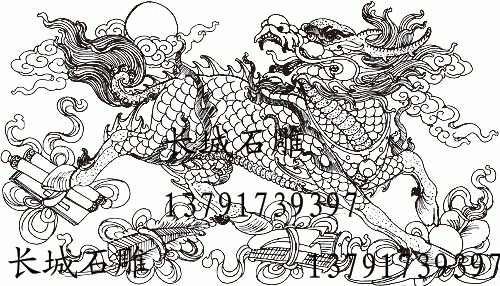 长城石雕
13791739397
长城石雕
13791739397